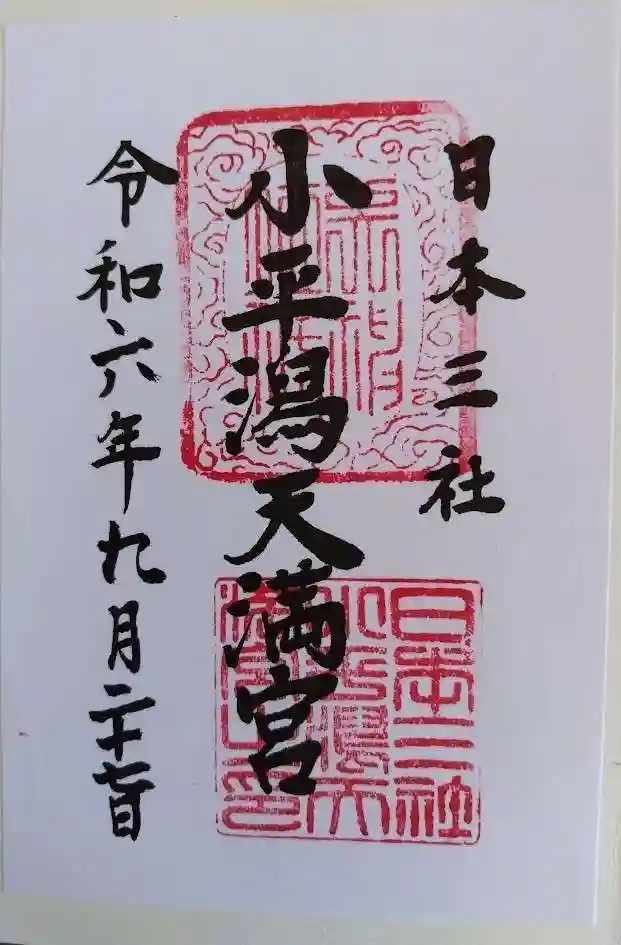 日本三社
小平潟天満宮
令和六年九月二十七日
日本三社
小平潟天
満宮之印